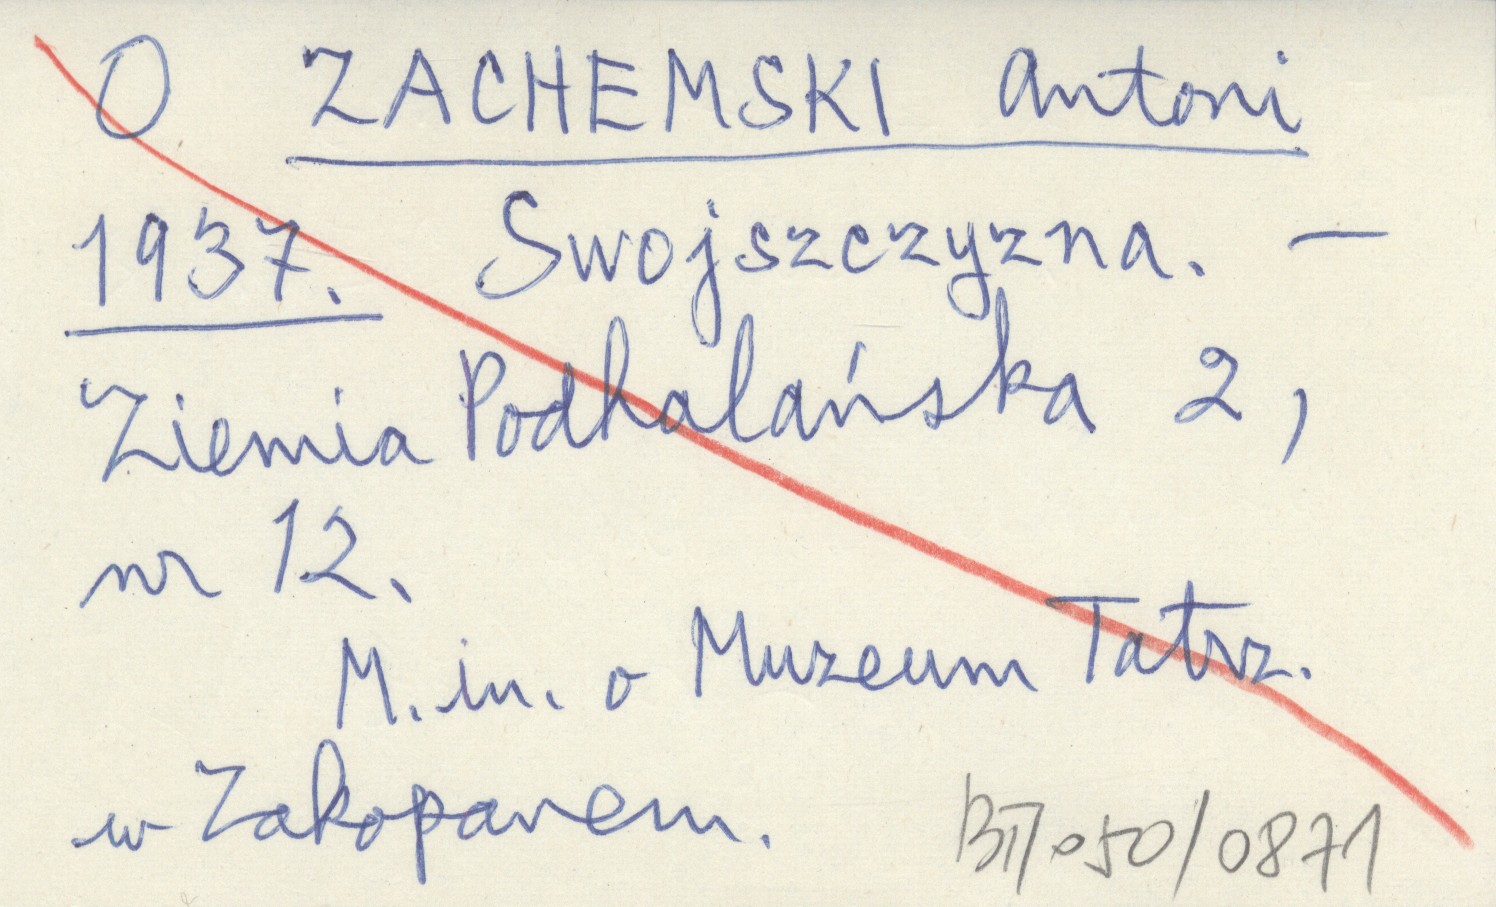 O ZACHEMSKI Antoni
1937. Swojszczyzna. —
Ziemia Podhalańska 2,
nr 12.
M. in. o Muzeum Tatrz.
w Zakopanem.
BTT/050/0871